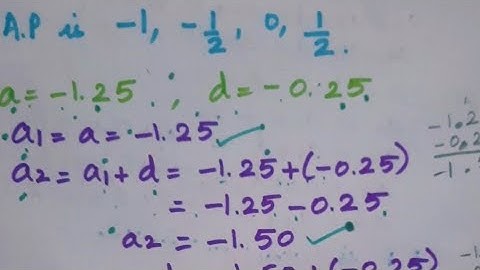 A.P is -1, -1/2, 0, 1/2.
a = -1.25 ; d = -0.25
a1 = a = -1.25 ✓
-1.2
a2 = a1 + d = -1.25 + (-0.25)
-0.2
-1.
= -1.25 - 0.25
a2 = -1.50 ✓